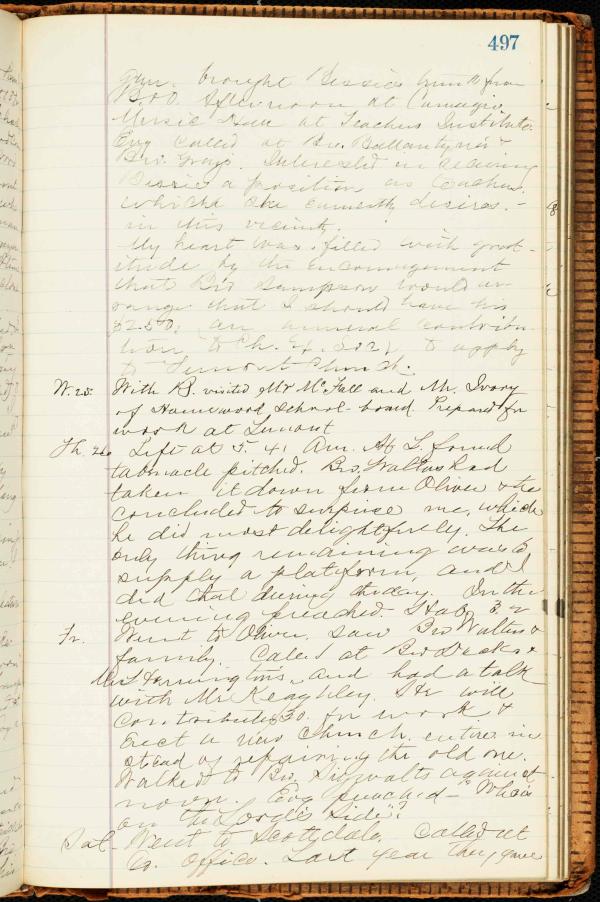 497
gym. brought Bessie's trunk from
B&O. Afternoon at Carnegie
Music Hall at Teachers Institute.
Evg called at Bro. Ballantyne's &
Bro. Grays. Interested in securing
Bessie a position as teacher,
which she earnestly desires. -
in this vicinity.
My heart was filled with grat-
itude by the encouragement
that Bro Sampson would ar-
range that I should have his
$2.50, an annual contribu-
tion to Ch. Ex. Soc. to apply
to Lemont Church.
W. 25. With B. visited Mr McFall and Mr. Ivory
of Homewood School-board. Prepared for
work at Lemont
Th. 26. Left at 5.41 Am. At L. found
tabernacle pitched. Bro. Walters had
taken it down from Oliver & the
concluded to surprise me, which
he did most delightfully. The
only thing remaining was to
supply a platform, and I
did that during the day. In the
evening preached. Hab. 3.2
Fr. Went to Oliver, saw Bro Walters &
family. Called at Bro Decks &
Mrs Herrington's, and had a talk
with Mr Keaghley. He will
contribute 50. for work &
Erect a new church entire in-
stead of repairing the old one.
Walked to Bro. Sigwalts against
noon. Evg preached - "Who is
on the Lord's Side"?
Sat. Went to Scottdale. Called at
Co. Office. Last year they gave